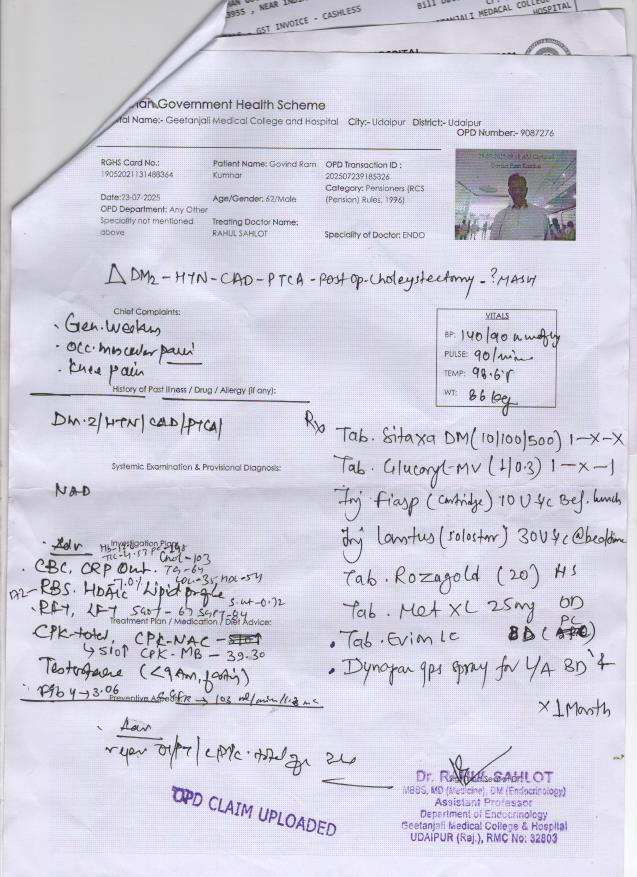 3955 , NEAR
GST INVOICE - CASHLESS
Government Health Scheme
Name:- Geetanjali Medical College and Hospital City:- Udaipur District:- Udaipur
OPD Number:- 9087276
RGHS Card No.:
19052021131488364
Patient Name: Govind Ram
Kumhar
OPD Transaction ID :
202507239185326
Category: Pensioners (RCS
(Pension) Rules, 1996)
Date:23-07-2025
OPD Department: Any Other
Speciality not mentioned
above
Age/Gender: 62/Male
Treating Doctor Name:
RAHUL SAHLOT
Speciality of Doctor: ENDO
Δ DM2 - HTN - CAD - PTCA - Post op - Choleystectomy - ? MASH
Chief Complaints:
Gen. Weakness
Occ. muscular pain
Knee pain
VITALS
BP: 140/90 mmHg
PULSE: 90/min
TEMP: 98.6°F
WT: 86 kg
History of Past Illness / Drug / Allergy (if any):
DM.2/HTN/CAD/PTCA/
Systemic Examination & Provisional Diagnosis:
NAD
Rx
Tab. Sitaxa DM (10/100/500) 1-x-x
Tab. Glucoryl-MV (1/0.3) 1-x-1
Inj Fiasp (Cartridge) 10 U s/c Bef. lunch
Inj Lantus (Solostar) 30U s/c @bedtime
Tab. Rozagold (20) HS
Tab. Met XL 25mg OD
Tab. Evion LC BD (PC)
Dynapar qps spray for L/A BD
x 1 Month
Adv
Investigation Plan:
Chol-103
CBC, CRP Quant. TG-64
RBS. HbA1c 7.0% Lipid profile
LDL-35 HDL-54
RFT, LFT SGOT-67 SGPT-84
Treatment Plan / Medication / Diet Advice:
CPK-total, CPK-NAC
CPK-MB - 39.30
Testosterone (<9AM, fasting)
Fib 4 → 3.06
Adv
OPD CLAIM UPLOADED
Dr. RAHUL SAHLOT
MBBS, MD (Medicine), DM (Endocrinology)
Assistant Professor
Department of Endocrinology
Geetanjali Medical College & Hospital
UDAIPUR (Raj.), RMC No: 32803